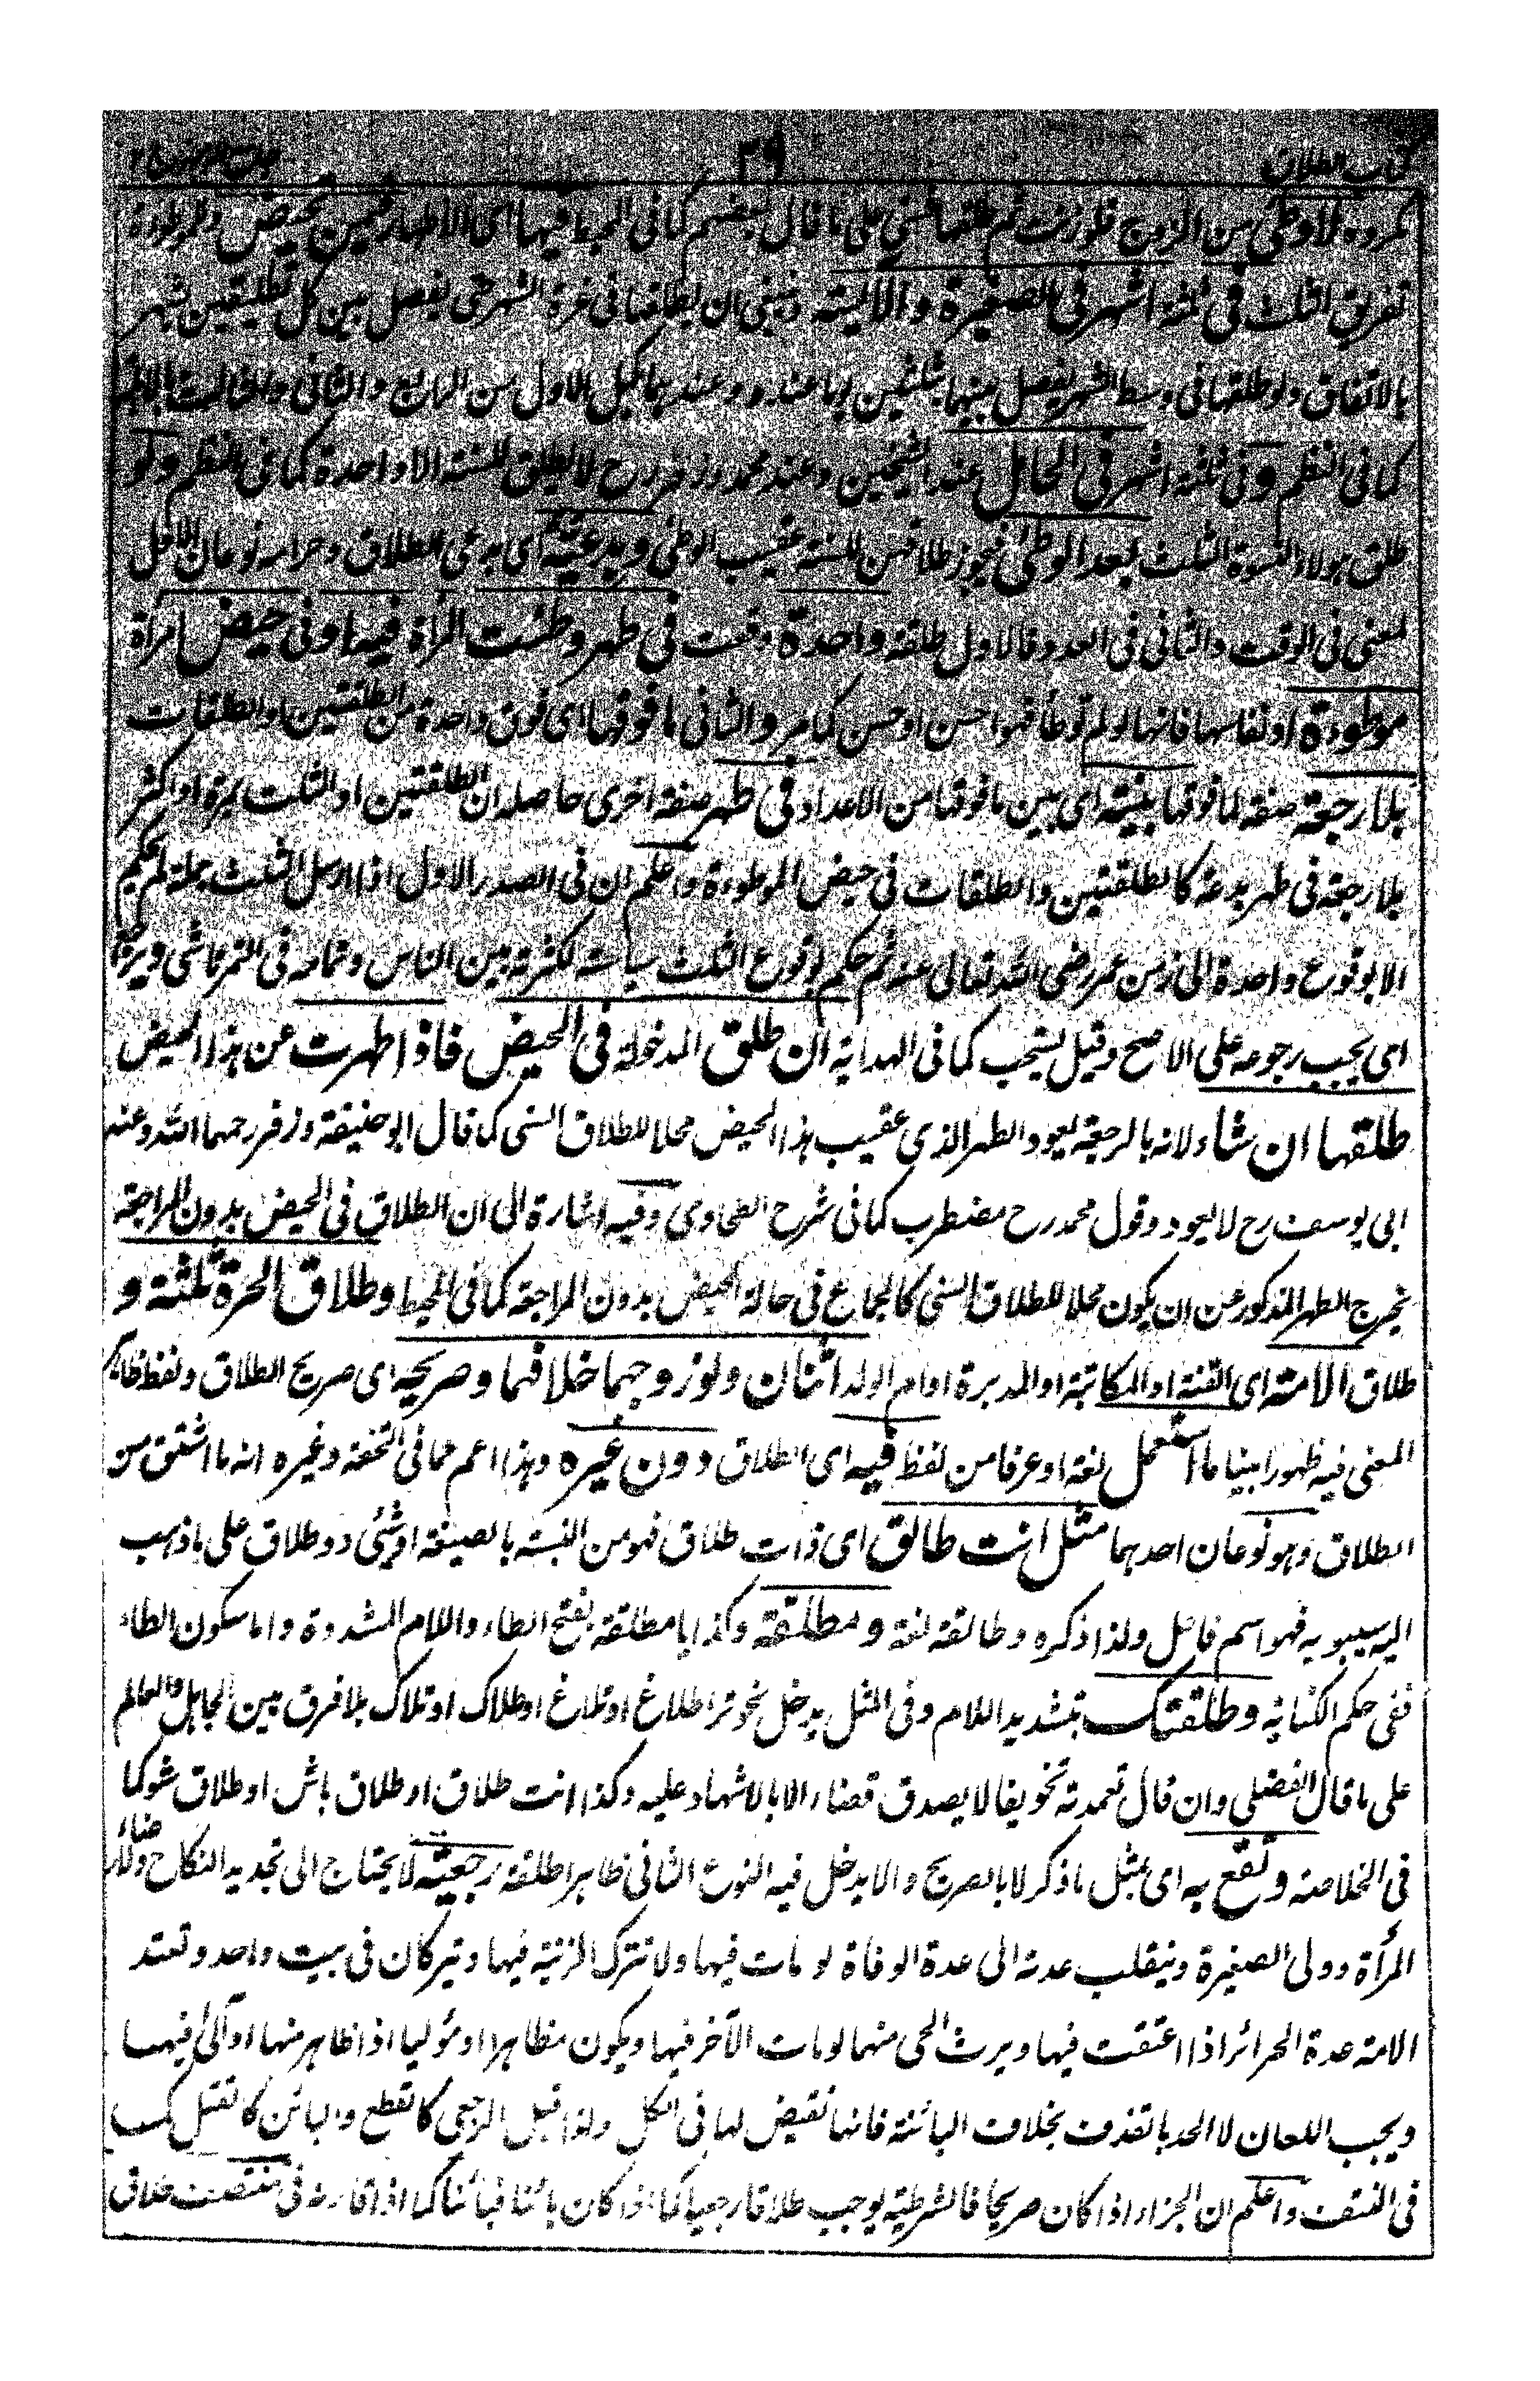 كتاب الطلاق ٢٩
مكروه لا وطى من الزوج فلو زنت ثم طلقها فسنى على ما قال بعضهم كما فى المحيط فيها اى الاطهار فيمن تحيض والموطوءة
تفريق الثلث فى ثلثة اشهر فى الصغيرة والآيسة وينبغى ان يطلقها فى غرة الشهر حتى يفصل بين كل تطليقتين بشهر
بالاتفاق ولو طلقها فى وسط الشهر يفصل بينهما بثلثين يوما عنده وعندهما يكمل الاول من الرابع والثانى والثالث بالاهلة
كما فى النظم وفى ثلثة اشهر فى الحامل عند الشيخين وعند محمد وزفر رح لا يطلق للسنة الا واحدة كما فى النظم ولو
طلق هولاء النسوة الثلث بعد الوطى يجوز طلاقهن للسنة عقيب الوطى وبدعيه اى بدعى الطلاق وحرامه نوعان الاول
لمعنى فى الوقت والثانى فى العدد فالاول طلقة واحدة وقعت فى طهر وطئت المرأة فيه او فى حيض امرأة
موطوءة او نفاسها فانها لو لم توطأ فهو احسن او حسن كما مر والثانى ما فوقها اى فوق واحدة من الطلقتين او الطلقات
بلا رجعة صفة لما فوقها بينة اى بين ما فوقها من الاعداد فى طهر صفة اخرى حاصله ان الطلقتين او الثلث بمرة او اكثر
بلا رجعة فى طهر بدعة كالطلقتين والطلقات فى حيض الموطوءة واعلم ان فى الصدر الاول اذا ارسل الثلث جملة لم يحكم
الا بوقوع واحدة الى زمن عمر رضى الله تعالى عنه ثم حكم بوقوع الثلث سياسة لكثرته بين الناس وتمامه فى التمرتاشى ويرجع
اى يجب رجوعه على الاصح وقيل يستحب كما فى الهداية ان طلق المدخولة فى الحيض فاذا طهرت عن هذا الحيض
طلقها ان شاء لانه بالرجعة يعود الطهر الذى عقيب هذا الحيض محلا للطلاق السنى كما قال ابو حنيفة وزفر رحمهما الله وعند
ابى يوسف رح لا يعود وقول محمد رح مضطرب كما فى شرح الطحاوى وفيه اشارة الى ان الطلاق فى الحيض بدون المراجعة
يخرج الطهر المذكور عن ان يكون محلا للطلاق السنى كالجماع فى حالة الحيض بدون المراجعة كما فى المحيط وطلاق الحرة ثلثة و
طلاق الامة اى القنة او المكاتبة او المدبرة او ام الولد اثنان ولو زوجهما خلافهما وصريحه اى صريح الطلاق ولفظ ظاهر
المعنى فيه ظهورا بينا ما استعمل لغة او عرفا من لفظ فيه اى الطلاق دون غيره وهذا اعم مما فى التحفة وغيره انه ما اشتق من
الطلاق وهو نوعان احدهما مثل انت طالق اى ذات طلاق فهو من النسبة بالصيغة او شئ ذو طلاق على ما ذهب
اليه سيبويه فهو اسم فاعل ولذا ذكره وطالقة لغة ومطلقة وكذا يا مطلقة بفتح الطاء واللام المشددة واما سكون الطاء
ففى حكم الكناية وطلقتك بتشديد اللام وفى المثل يدخل نحو ترا طلاغ او تلاغ او طلاك او تلاك بلا فرق بين الجاهل والعالم
على ما قال الفضلى وان قال تعمدته تخويفا لا يصدق قضاء الا بالاشهاد عليه وكذا انت طلاق او طلاق باش او طلاق شو كما
فى الخلاصة وتقع به اى بمثل ما ذكر لا بالصريح والا يدخل فيه النوع الثانى ظاهرا طلقة رجعية لا يحتاج الى تجديد النكاح ولا رضاء
المرأة وولى الصغيرة وينقلب عدته الى عدة الوفاة لو مات فيها ولا تترك الزينة فيها ويتركان فى بيت واحد وتعتد
الامة عدة الحرائر اذا اعتقت فيها ويرث الحى منهما لو مات الآخر فيها ويكون مظاهرا او مؤليا اذا ظاهر منها او آلى فيها
ويجب اللعان لا الحد بالقذف بخلاف البائنة فانها نقيض لها فى الكل ولذا قيل الرجعى كالقطع والبائن كالقتل كما
فى النتف واعلم ان الجزاء اذا كان صريحا فالشرطية يوجب طلاقا رجعيا كما اذا كان بائنا فبائنا كما اذا قارنه فى منتصف طلاق